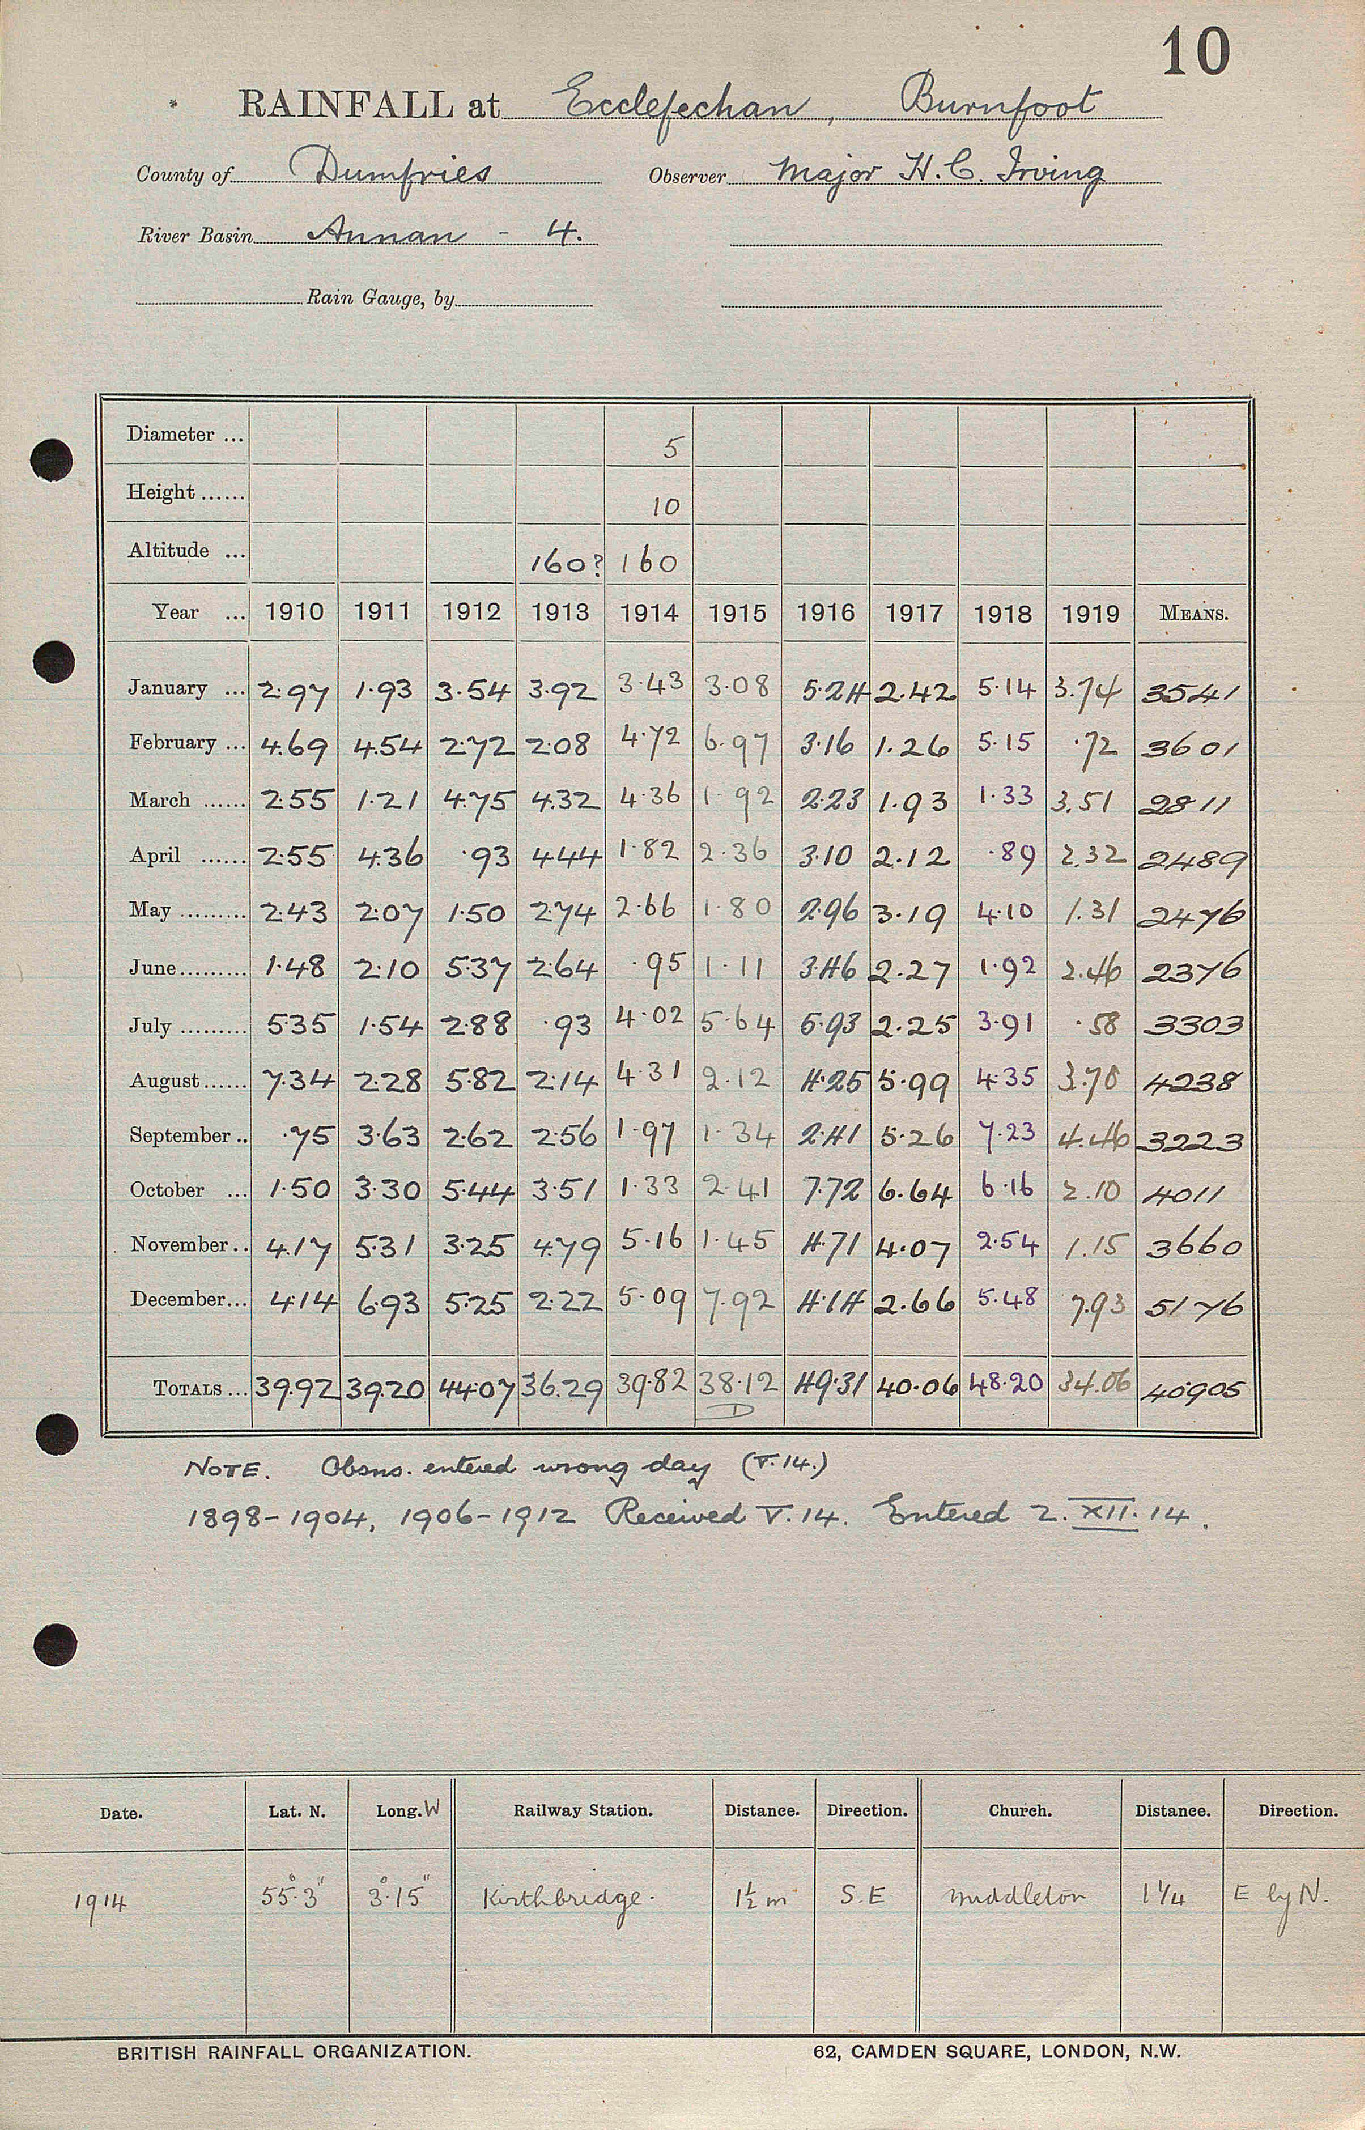 10
RAINFALL at Ecclefechan, Burnfoot
County of Dumfries Observer Major H. C. Irving
River Basin Annan - 4.
Rain Gauge, by
Diameter ... 5
Height ...... 10
Altitude ... 160? 160
Year ... 1910 1911 1912 1913 1914 1915 1916 1917 1918 1919 MEANS.
January ... 2.97 1.93 3.54 3.92 3.43 3.08 5.24 2.42 5.14 3.74 3541
February ... 4.69 4.54 2.72 2.08 4.72 6.97 3.16 1.26 5.15 .72 3601
March ...... 2.55 1.21 4.75 4.32 4.36 1.92 2.23 1.93 1.33 3.51 2811
April ...... 2.55 4.36 .93 4.44 1.82 2.36 3.10 2.12 .89 2.32 2489
May ......... 2.43 2.07 1.50 2.74 2.66 1.80 2.96 3.19 4.10 1.31 2476
June ......... 1.48 2.10 5.37 2.64 .95 1.11 3.46 2.27 1.92 2.46 2376
July ......... 5.35 1.54 2.88 .93 4.02 5.64 5.93 2.25 3.91 .58 3303
August ...... 7.34 2.28 5.82 2.14 4.31 2.12 4.25 5.99 4.35 3.78 4238
September .. .75 3.63 2.62 2.56 1.97 1.34 2.41 5.26 7.23 4.46 3223
October ... 1.50 3.30 5.44 3.51 1.33 2.41 7.72 6.64 6.16 2.10 4011
November .. 4.17 5.31 3.25 4.79 5.16 1.45 4.71 4.07 2.54 1.15 3660
December ... 4.14 6.93 5.25 2.22 5.09 7.92 4.14 2.66 5.48 7.93 5176
TOTALS ... 39.92 39.20 44.07 36.29 39.82 38.12 49.31 40.06 48.20 34.06 40905
D
NOTE. Obsns. entered wrong day (V.14.)
1898-1904, 1906-1912 Received V.14. Entered 2.XII.14.
Date. Lat. N. Long. W Railway Station. Distance. Direction. Church. Distance. Direction.
1914 55° 3" 3° 15" Kirtlebridge. 1½ m S.E Middleton 1¼ E by N.
BRITISH RAINFALL ORGANIZATION. 62, CAMDEN SQUARE, LONDON, N.W.